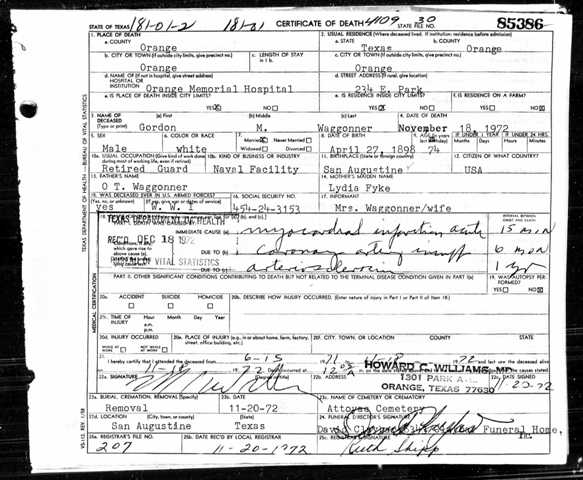 STATE OF TEXAS 181-01-2 181-01 CERTIFICATE OF DEATH 4109 STATE FILE NO. 30 85386
1. PLACE OF DEATH 2. USUAL RESIDENCE (Where deceased lived. If institution: residence before admission)
a. COUNTY Orange a. STATE Texas b. COUNTY Orange
b. CITY OR TOWN (If outside city limits, give precinct no.) c. LENGTH OF STAY in 1 b. c. CITY OR TOWN (If outside city limits, give precinct no.)
Orange Orange
d. NAME OF (If not in hospital, give street address) HOSPITAL OR INSTITUTION Orange Memorial Hospital d. STREET ADDRESS (If rural, give location) 234 E. Park
e. IS PLACE OF DEATH INSIDE CITY LIMITS? YES X NO e. IS RESIDENCE INSIDE CITY LIMITS? YES NO f. IS RESIDENCE ON A FARM? YES NO
3. NAME OF DECEASED (Type or print) (a) First (b) Middle (c) Last 4. DATE OF DEATH
Gordon M. Waggonner November 18, 1972
5. SEX 6. COLOR OR RACE 7. Married Never Married Widowed Divorced 8. DATE OF BIRTH IF UNDER 1 YEAR IF UNDER 24 HRS.
Male white April 27, 1898 74
10a. USUAL OCCUPATION 10b. KIND OF BUSINESS OR INDUSTRY 11. BIRTHPLACE (State or foreign country) 12. CITIZEN OF WHAT COUNTRY?
Retired Guard Naval Facility San Augustine USA
13. FATHER'S NAME 14. MOTHER'S MAIDEN NAME
O T. Waggonner Lydia Fyke
15. WAS DECEASED EVER IN U.S. ARMED FORCES? 16. SOCIAL SECURITY NO. 17. INFORMANT
yes W. W. I 454-24-3153 Mrs. Waggonner/wife
TEXAS DEPARTMENT OF HEALTH
IMMEDIATE CAUSE (a) myocardial infarction acute 15 min
REC'D DEC 18 1972
DUE TO (b) coronary artery insuff 6 mon
BUREAU OF VITAL STATISTICS
DUE TO (c) arteriosclerosis 1 yr
PART II. OTHER SIGNIFICANT CONDITIONS CONTRIBUTING TO DEATH BUT NOT RELATED TO THE TERMINAL DISEASE CONDITION GIVEN IN PART I(a) 19. WAS AUTOPSY PERFORMED? YES NO
20a. ACCIDENT SUICIDE HOMICIDE 20b. DESCRIBE HOW INJURY OCCURRED. (Enter nature of injury in Part I or Part II of Item 18)
20c. TIME OF INJURY Hour a.m. p.m. Month Day Year
20d. INJURY OCCURRED WHILE AT WORK NOT WHILE AT WORK 20e. PLACE OF INJURY (e.g., in or about home, farm, factory, street, office building, etc.) 20f. CITY, TOWN, OR LOCATION COUNTY STATE
21. I hereby certify that I attended the deceased from 6-15 72 and last saw the deceased alive
Death occurred at
22a. SIGNATURE 22b. ADDRESS 22c. DATE SIGNED
HOWARD C. WILLIAMS, MD
1301 PARK AVE.
ORANGE, TEXAS 77630 11-20-72
23a. BURIAL, CREMATION, REMOVAL (Specify) 23b. DATE 23c. NAME OF CEMETERY OR CREMATORY
Removal 11-20-72 Attoyac Cemetery
23d. LOCATION (City, town, or county) (State) 24. FUNERAL DIRECTOR'S SIGNATURE
San Augustine Texas Funeral Home, Inc.
25a. REGISTRAR'S FILE NO. 25b. DATE REC'D BY LOCAL REGISTRAR 25c. REGISTRAR'S SIGNATURE
207 11-20-1972 Ruth Shipp
TEXAS DEPARTMENT OF HEALTH—BUREAU OF VITAL STATISTICS
MEDICAL CERTIFICATION